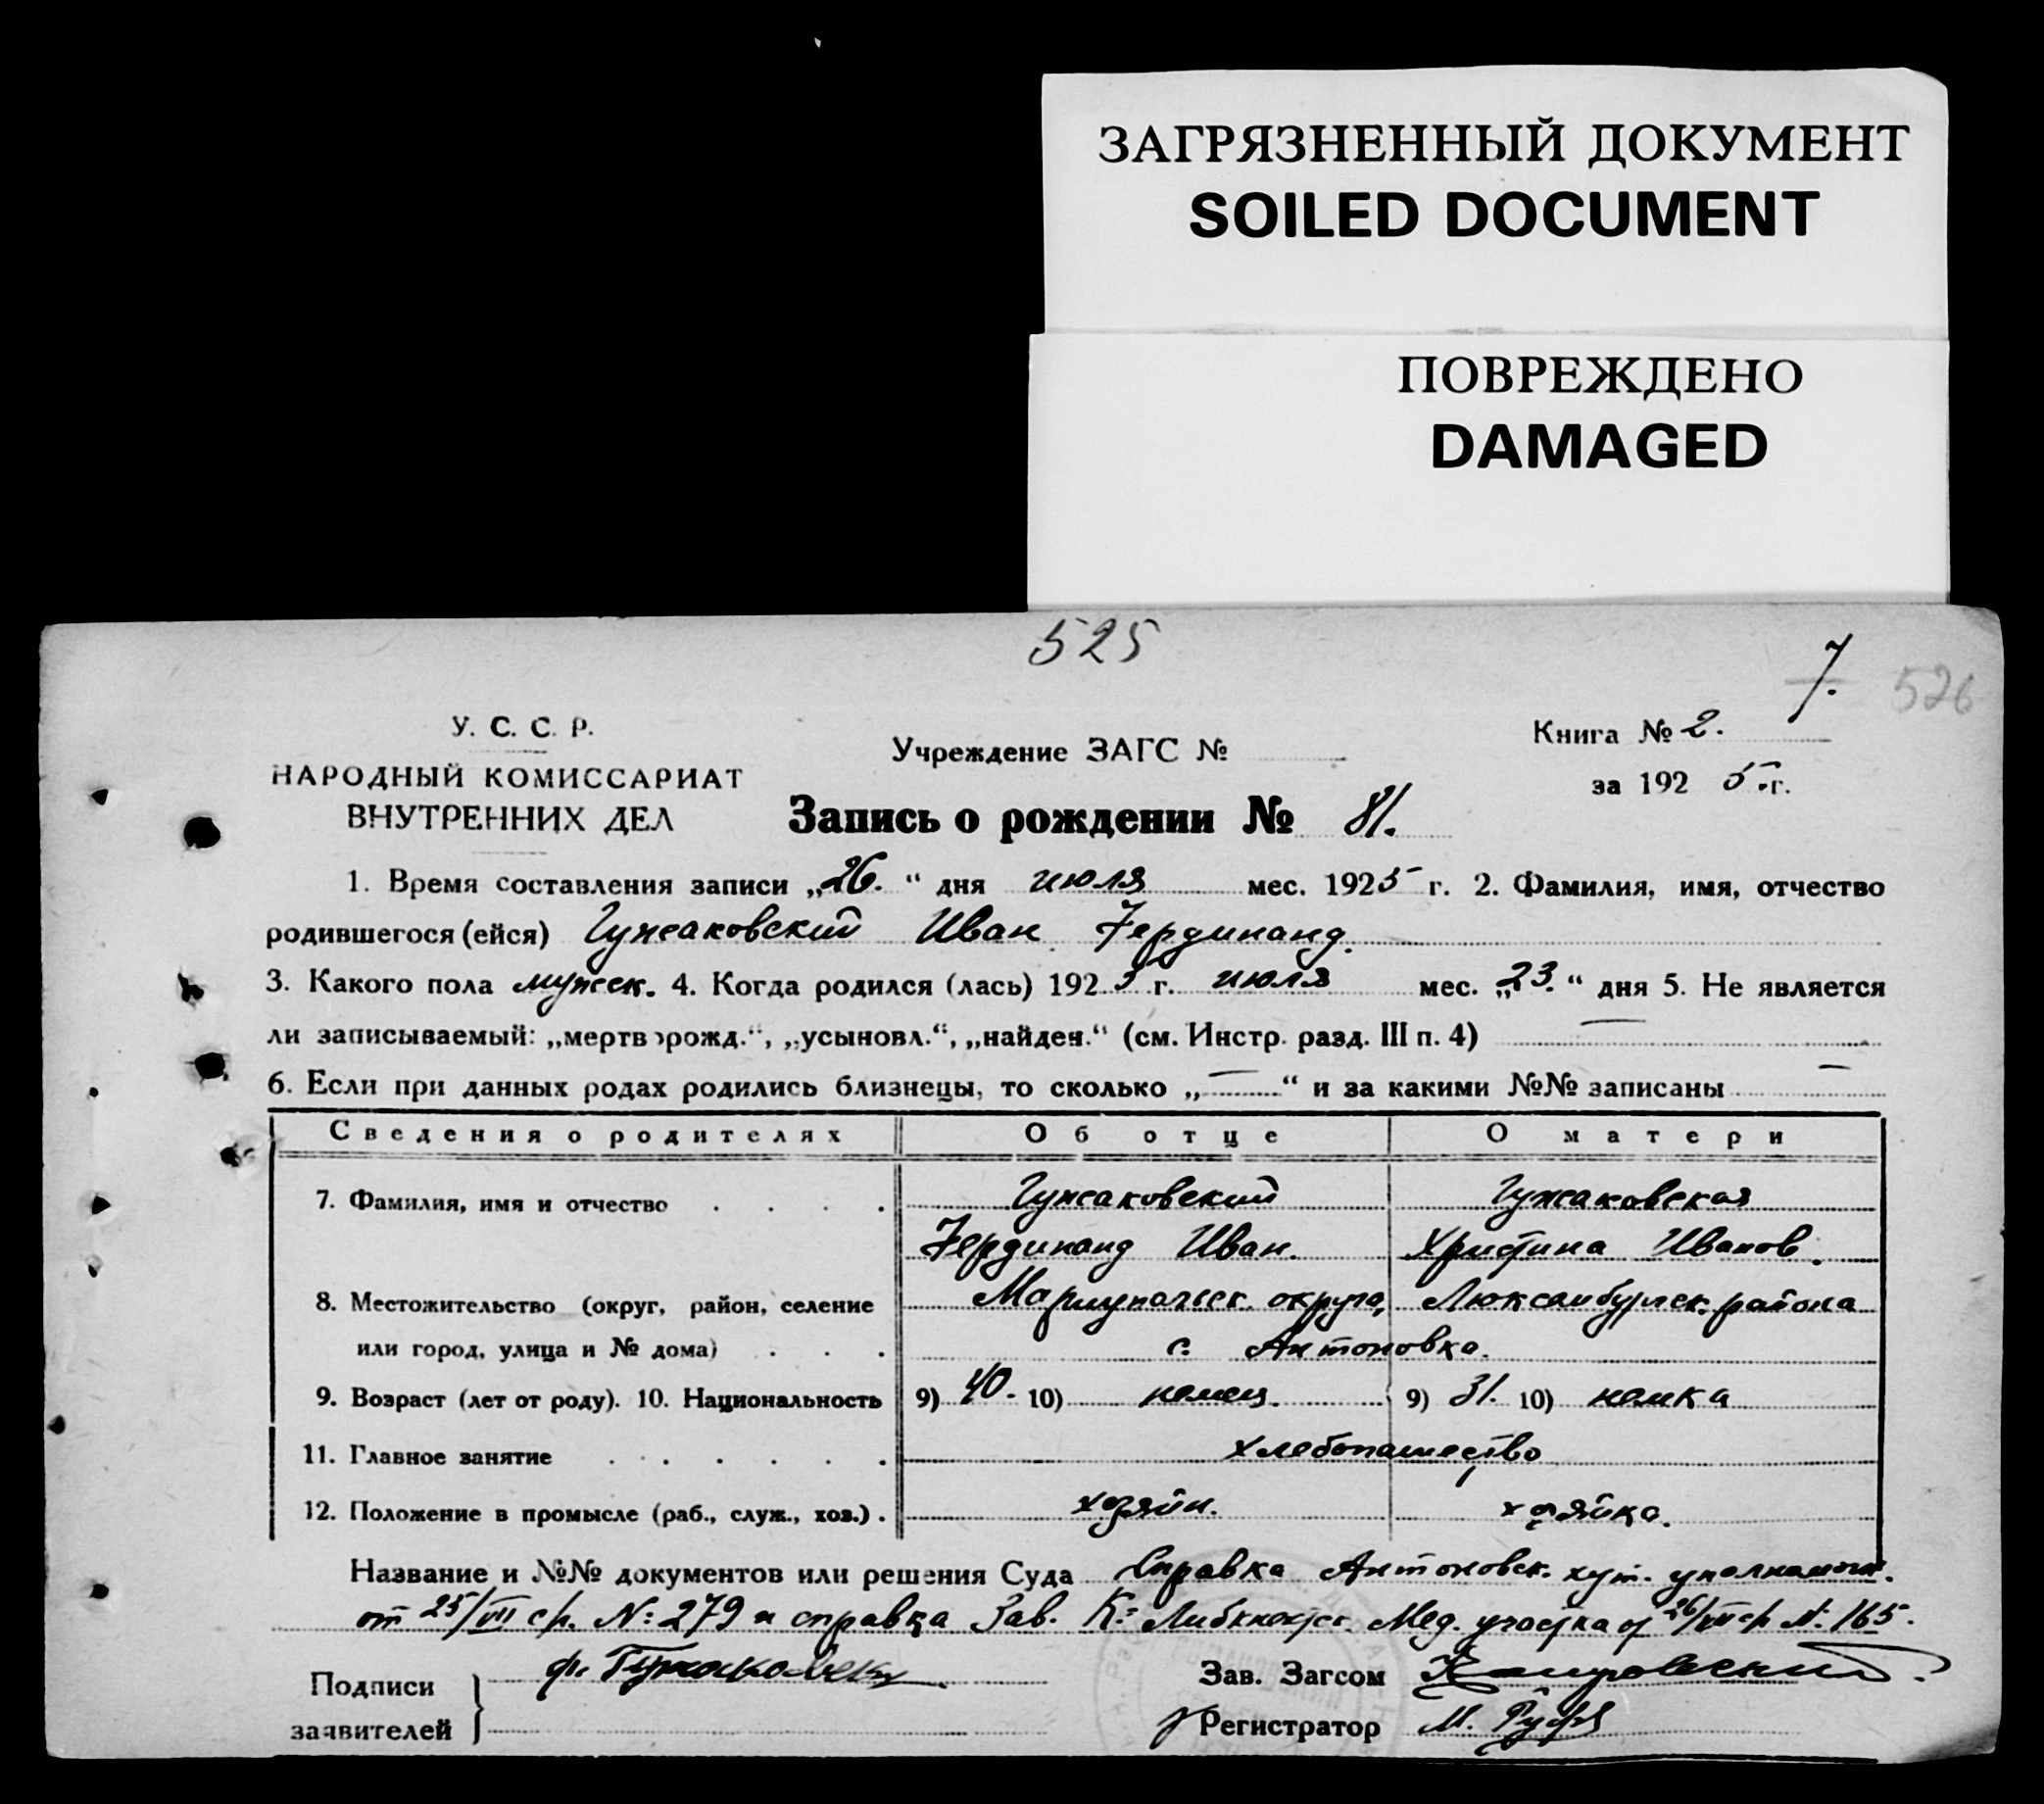 ЗАГРЯЗНЕННЫЙ ДОКУМЕНТ
SOILED DOCUMENT
ПОВРЕЖДЕНО
DAMAGED
525
7. 526
У. С. С. Р.
Учреждение ЗАГС №
Книга № 2.
НАРОДНЫЙ КОМИССАРИАТ
ВНУТРЕННИХ ДЕЛ
за 1925 г.
Запись о рождении № 81.
1. Время составления записи „26.“ дня июля мес. 1925 г. 2. Фамилия, имя, отчество
родившегося (ейся) Гужаковский Иван Фердинанд.
3. Какого пола мужск. 4. Когда родился (лась) 1925 г. июля мес. „23.“ дня 5. Не является
ли записываемый: „мертворожд.“, „усыновл.“, „найден.“ (см. Инстр. разд. III п. 4) —
6. Если при данных родах родились близнецы, то сколько „—“ и за какими №№ записаны —
Сведения о родителях Об отце О матери
7. Фамилия, имя и отчество Гужаковский Гужаковская
Фердинанд Иван. Христина Иванов.
8. Местожительство (округ, район, селение Мариупольск. округа, Люксембургск. района
или город, улица и № дома) с. Антоновка.
9. Возраст (лет от роду). 10. Национальность 9) 40. 10) немец. 9) 31. 10) немка
11. Главное занятие хлебопашество
12. Положение в промысле (раб., служ., хоз.) хозяин. хозяйка.
Название и №№ документов или решения Суда Справка Антоновск. хут. уполномоч.
от 25/VII с/г. №: 279 и справка Зав. К: Либкнехтск. Мед. участка от 26/VII с/г №: 165.
Подписи
заявителей
Ф. Гужаковски
Зав. Загсом
Регистратор М.